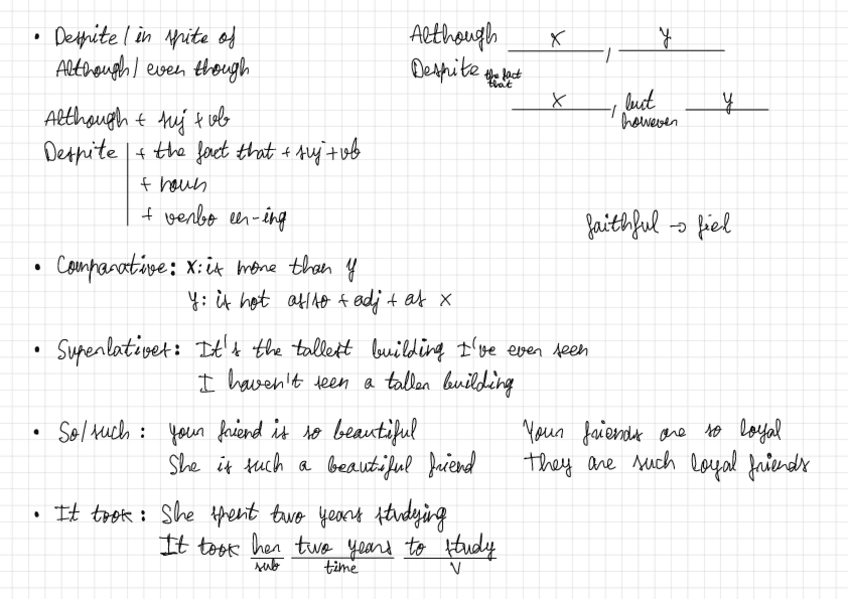 • Despite / in spite of
Although / even though
Although + suj + vb
Despite + the fact that + suj + vb
+ noun
+ verbo en -ing
Although x , y
Despite the fact that
x , but however y
faithful → fiel
• Comparative: X: is more than y
y: is not as/so + adj + as x
• Superlatives: It's the tallest building I've ever seen
I haven't seen a taller building
• So/such: Your friend is so beautiful
She is such a beautiful friend
Your friends are so loyal
They are such loyal friends
• It took: She spent two years studying
It took her two years to study
sub time V